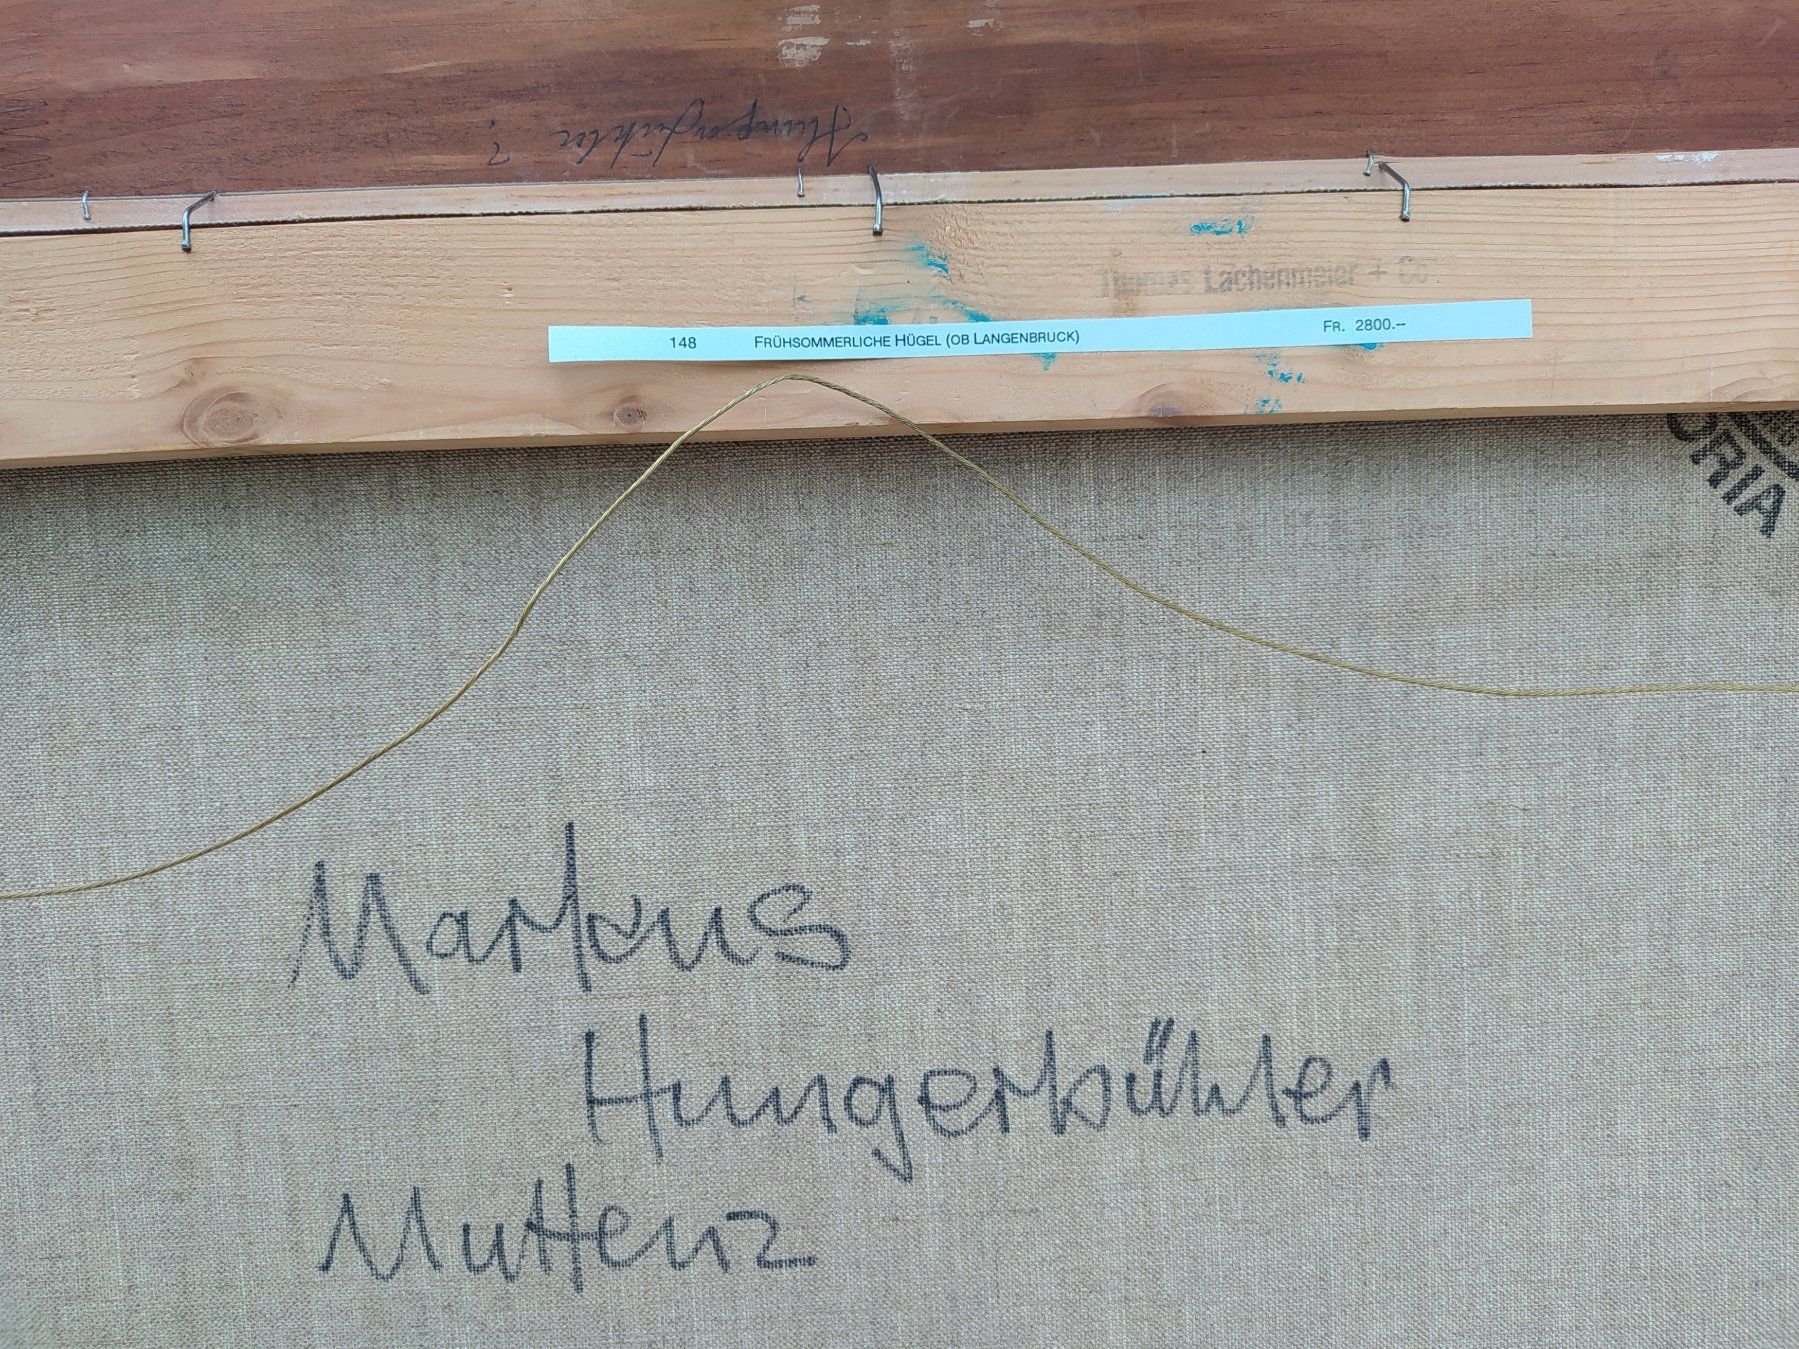 Thomas Lachenmeier + Co.
148 FRÜHSOMMERLICHE HÜGEL (OB LANGENBRUCK) FR. 2800.--
ORIA
Markus
Hungerbühler
Muttenz